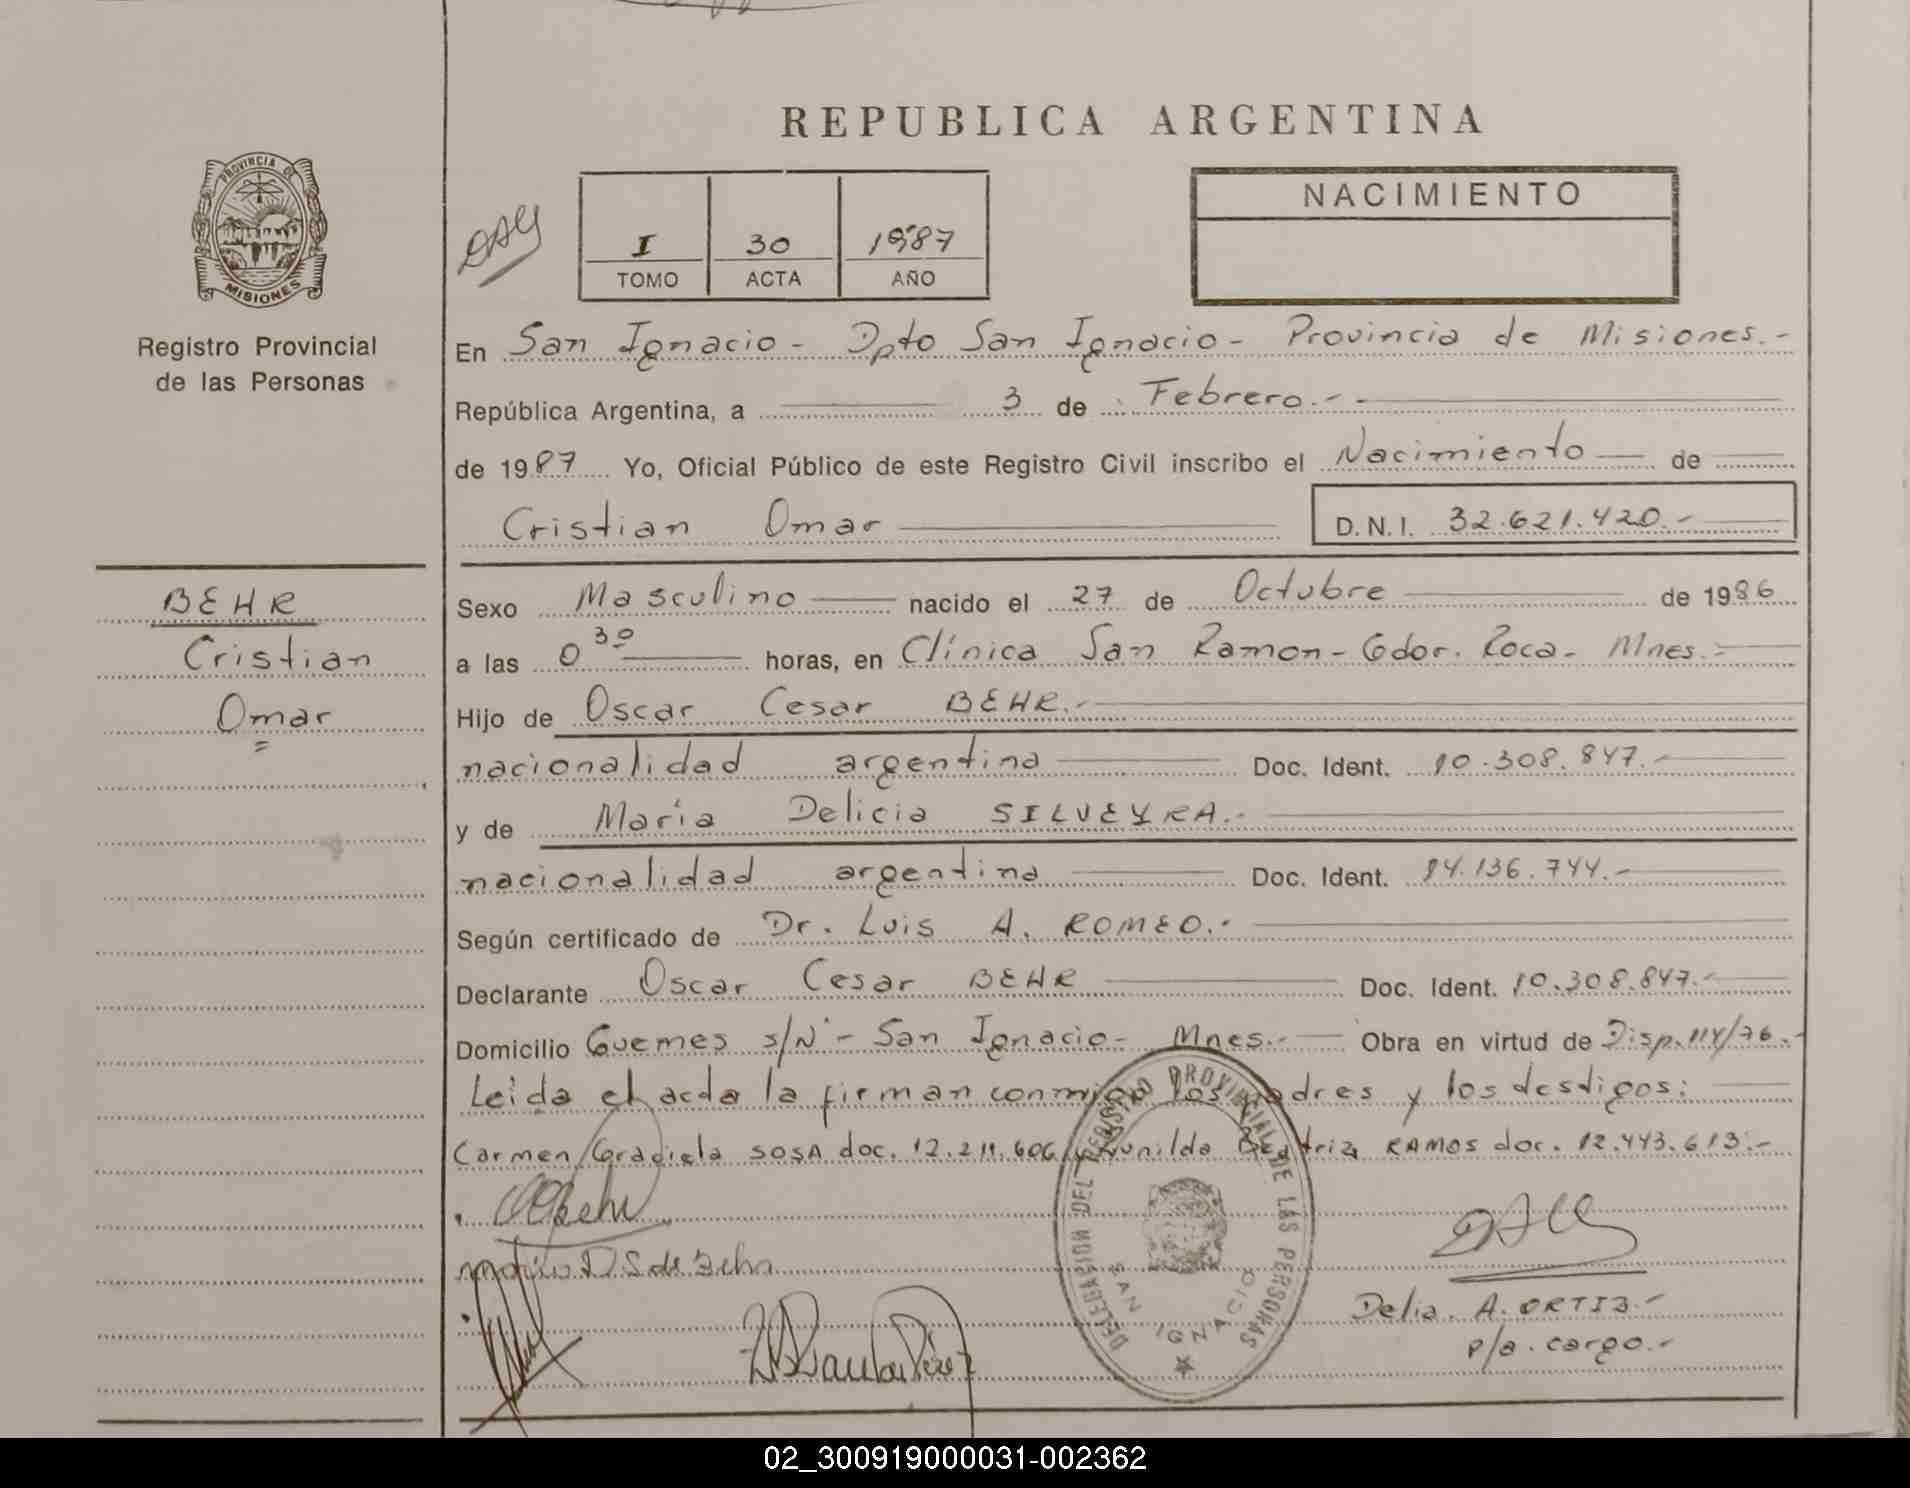 REPUBLICA ARGENTINA
PROVINCIA DE MISIONES
Registro Provincial
de las Personas
I 30 1987
TOMO ACTA AÑO
NACIMIENTO
En San Ignacio - Dpto San Ignacio - Provincia de Misiones.-
República Argentina, a 3 de Febrero.-
de 1987 Yo, Oficial Público de este Registro Civil inscribo el Nacimiento de
Cristian Omar D.N.I. 32.621.420.-
BEHR
Cristian
Omar
Sexo Masculino nacido el 27 de Octubre de 1986
a las 0 30 horas, en Clínica San Ramon - Gdor. Roca - Mnes.-
Hijo de Oscar Cesar BEHR.-
nacionalidad argentina Doc. Ident. 10.308.847.-
y de María Delicia SILVEYRA.-
nacionalidad argentina Doc. Ident. 14.136.744.-
Según certificado de Dr. Luis A. ROMEO.-
Declarante Oscar Cesar BEHR Doc. Ident. 10.308.847.-
Domicilio Guemes s/N - San Ignacio - Mnes.- Obra en virtud de Disp. 114/76.-
Leida el acta la firman conmigo los padres y los testigos:
Carmen Graciela SOSA doc. 12.211.606 Beatriz RAMOS doc. 12.443.613.-
DELEGACION DEL REGISTRO PROVINCIAL DE LAS PERSONAS
SAN IGNACIO
Delia. A. ORTIZ.-
p/a. cargo.-
02_300919000031-002362